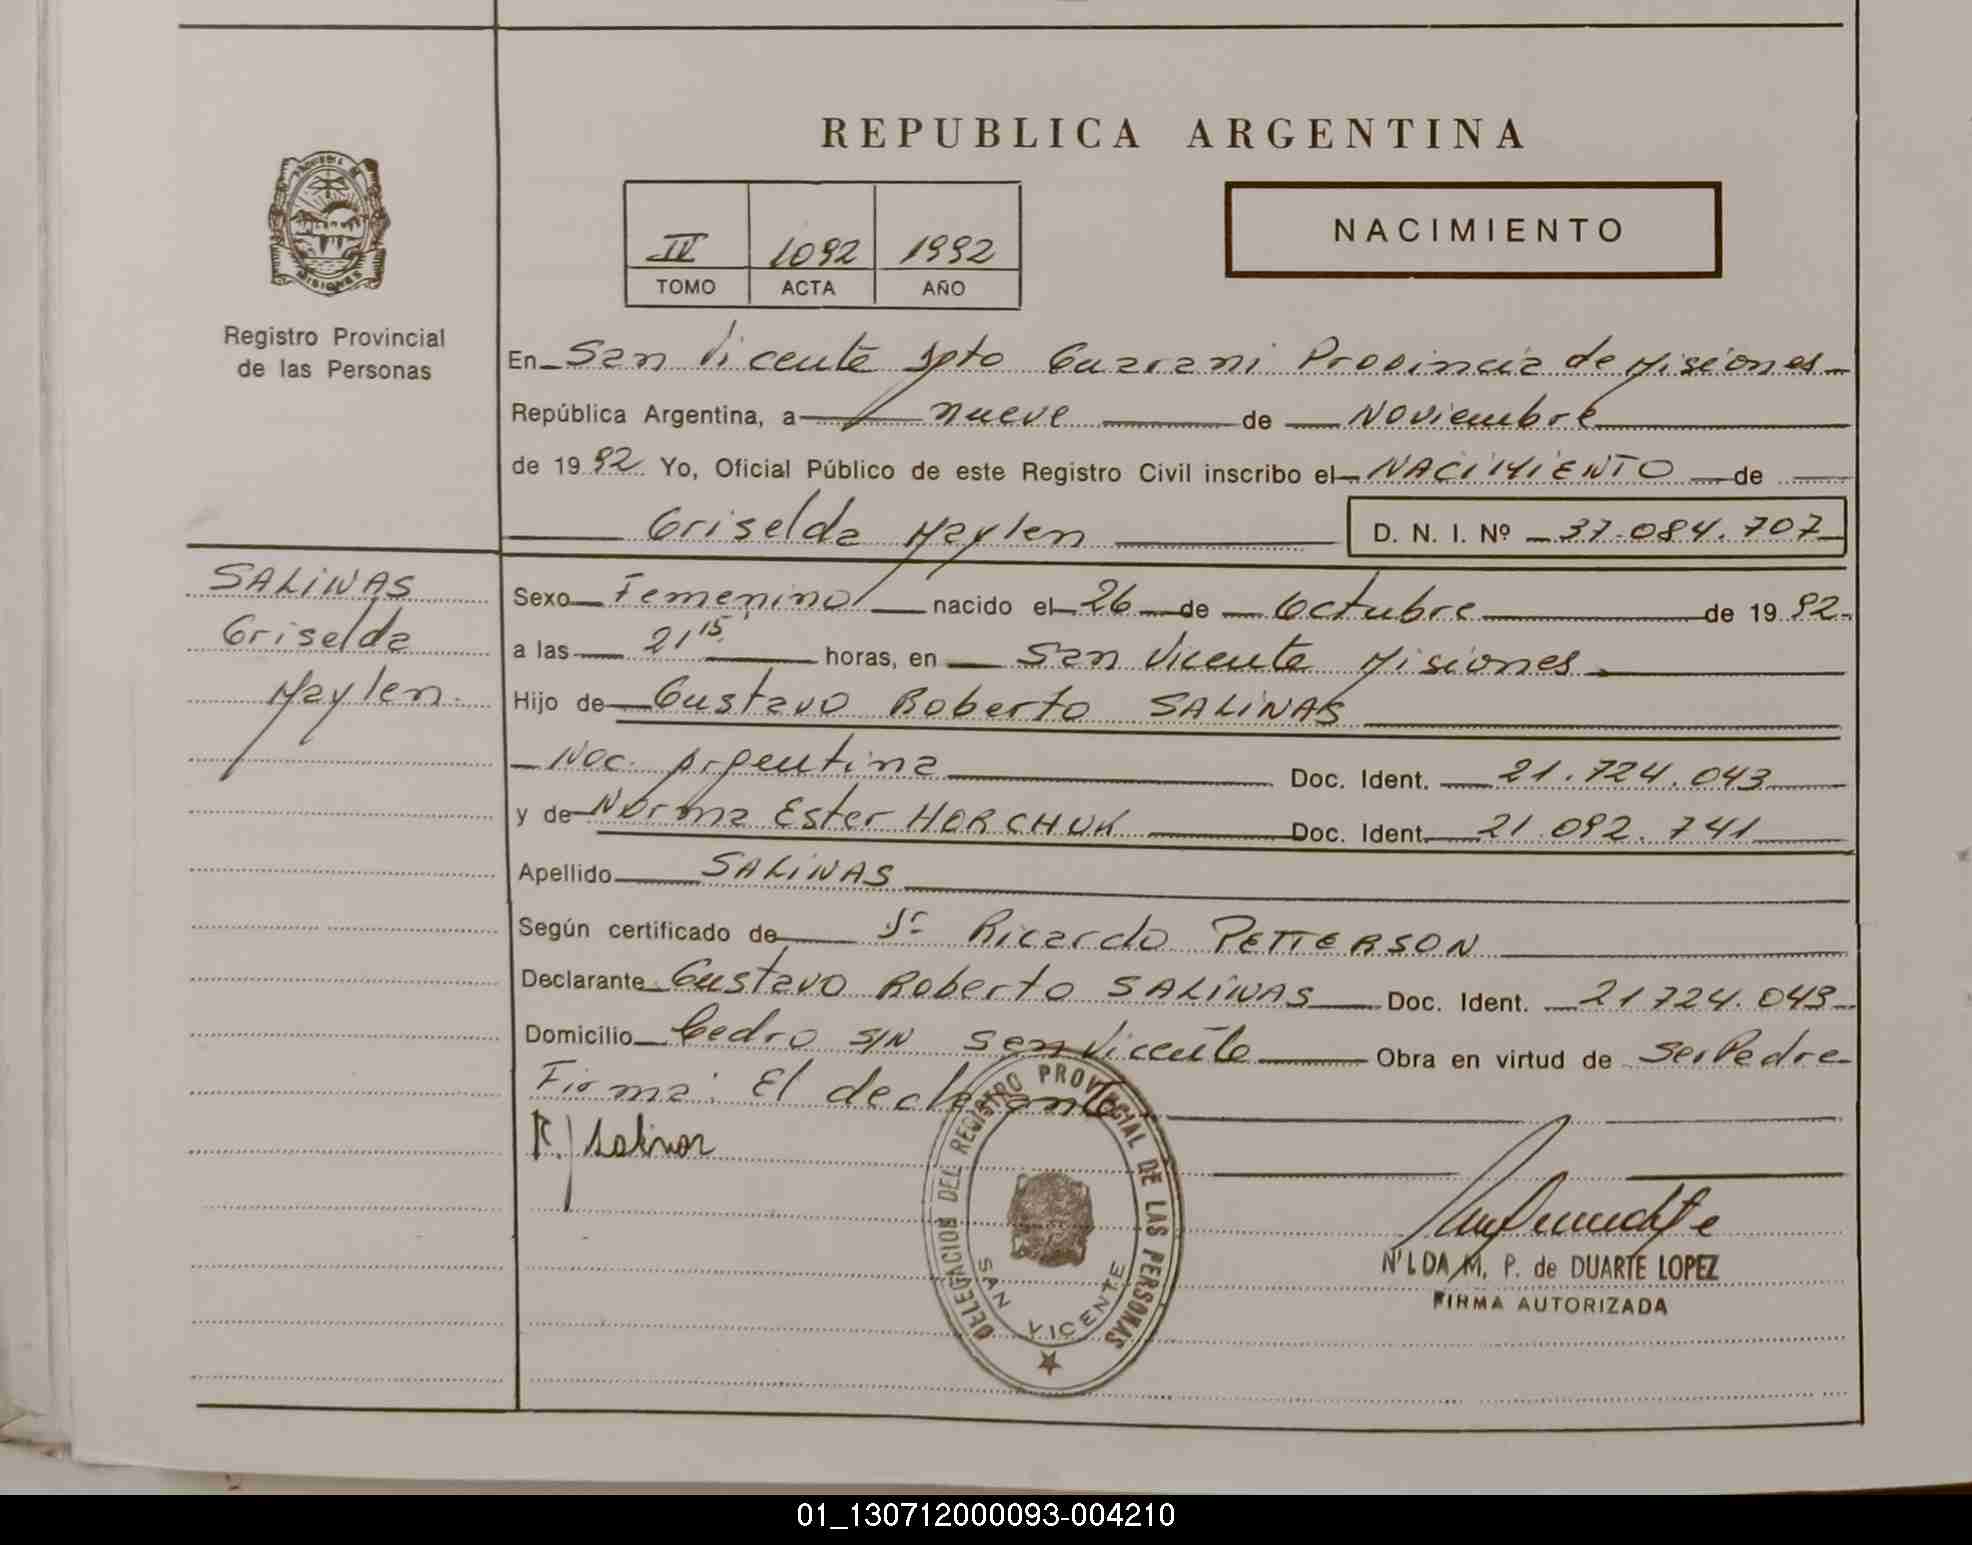 REPUBLICA ARGENTINA
NACIMIENTO
IV 1092 1992
TOMO ACTA AÑO
Registro Provincial
de las Personas
En San Vicente Dpto Guarani Provincia de Misiones
República Argentina, a nueve de Noviembre
de 1992 Yo, Oficial Público de este Registro Civil inscribo el NACIMIENTO de
Griselda Maylen D. N. I. Nº 37.084.707
SALINAS
Griselda
Maylen.
Sexo Femenino nacido el 26 de Octubre de 1992
a las 21 15 horas, en San Vicente Misiones
Hijo de Gustavo Roberto SALINAS
Nac. Argentina Doc. Ident. 21.724.043
y de Norma Ester HORCHUK Doc. Ident. 21.092.741
Apellido SALINAS
Según certificado de Dr Ricardo PETTERSON
Declarante Gustavo Roberto SALINAS Doc. Ident. 21724.043
Domicilio Cedro S/N San Vicente Obra en virtud de Ser Padre
Firma: El declarante
R. Salinas
DELEGACION DEL REGISTRO PROVINCIAL DE LAS PERSONAS
SAN VICENTE
N'LDA M. P. de DUARTE LOPEZ
FIRMA AUTORIZADA
01_130712000093-004210